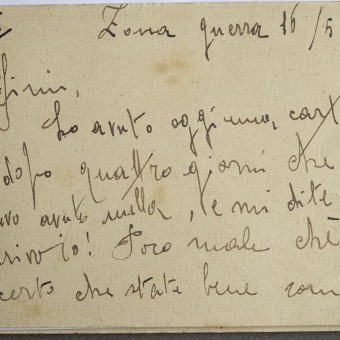 Zona guerra 16/5
Ho avuto oggi una cart
dopo quattro giorni che
avuto nulla, e mi dite
Poco male chè
certo che state bene com